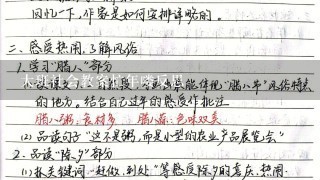 回忆一下,作家是如何安排详略的。
二、感受热闹,了解风俗
1.学习"腊八"部分
体现"腊八节"风俗特点
的地方。结合自己过年的感受作批注
腊八粥:食材多 腊八蒜:色味双美
(2)品读句子"这不是粥,而是小型的农业产品展览会"
2.品读"除夕"部分
(1)抓关键词"赶做、到处"等感受除夕的喜庆、热闹.